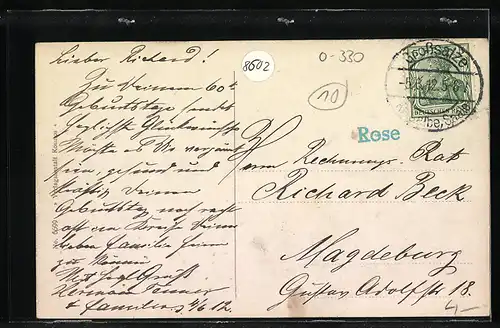 Lieber Richard!
Zu Deinem 60t.
Geburtstage sendet
herzlichste Glückwünsche
Möchte es Dir vergönnt
sein, gesund und
kräftig Deinen
Geburtstag noch recht
oft im Kreise Deiner
lieben Familie feiern
zu können
Mit herzl. Gruß
Hermann
& Familie, 4/6.12.
8602
0-330
10
Rose
Großsalze
DEUTSCHES REICH
Herrn Rechnungs-Rat
Richard Beck
Magdeburg
Gustav Adolfstr 18.
4.-
No. 6599